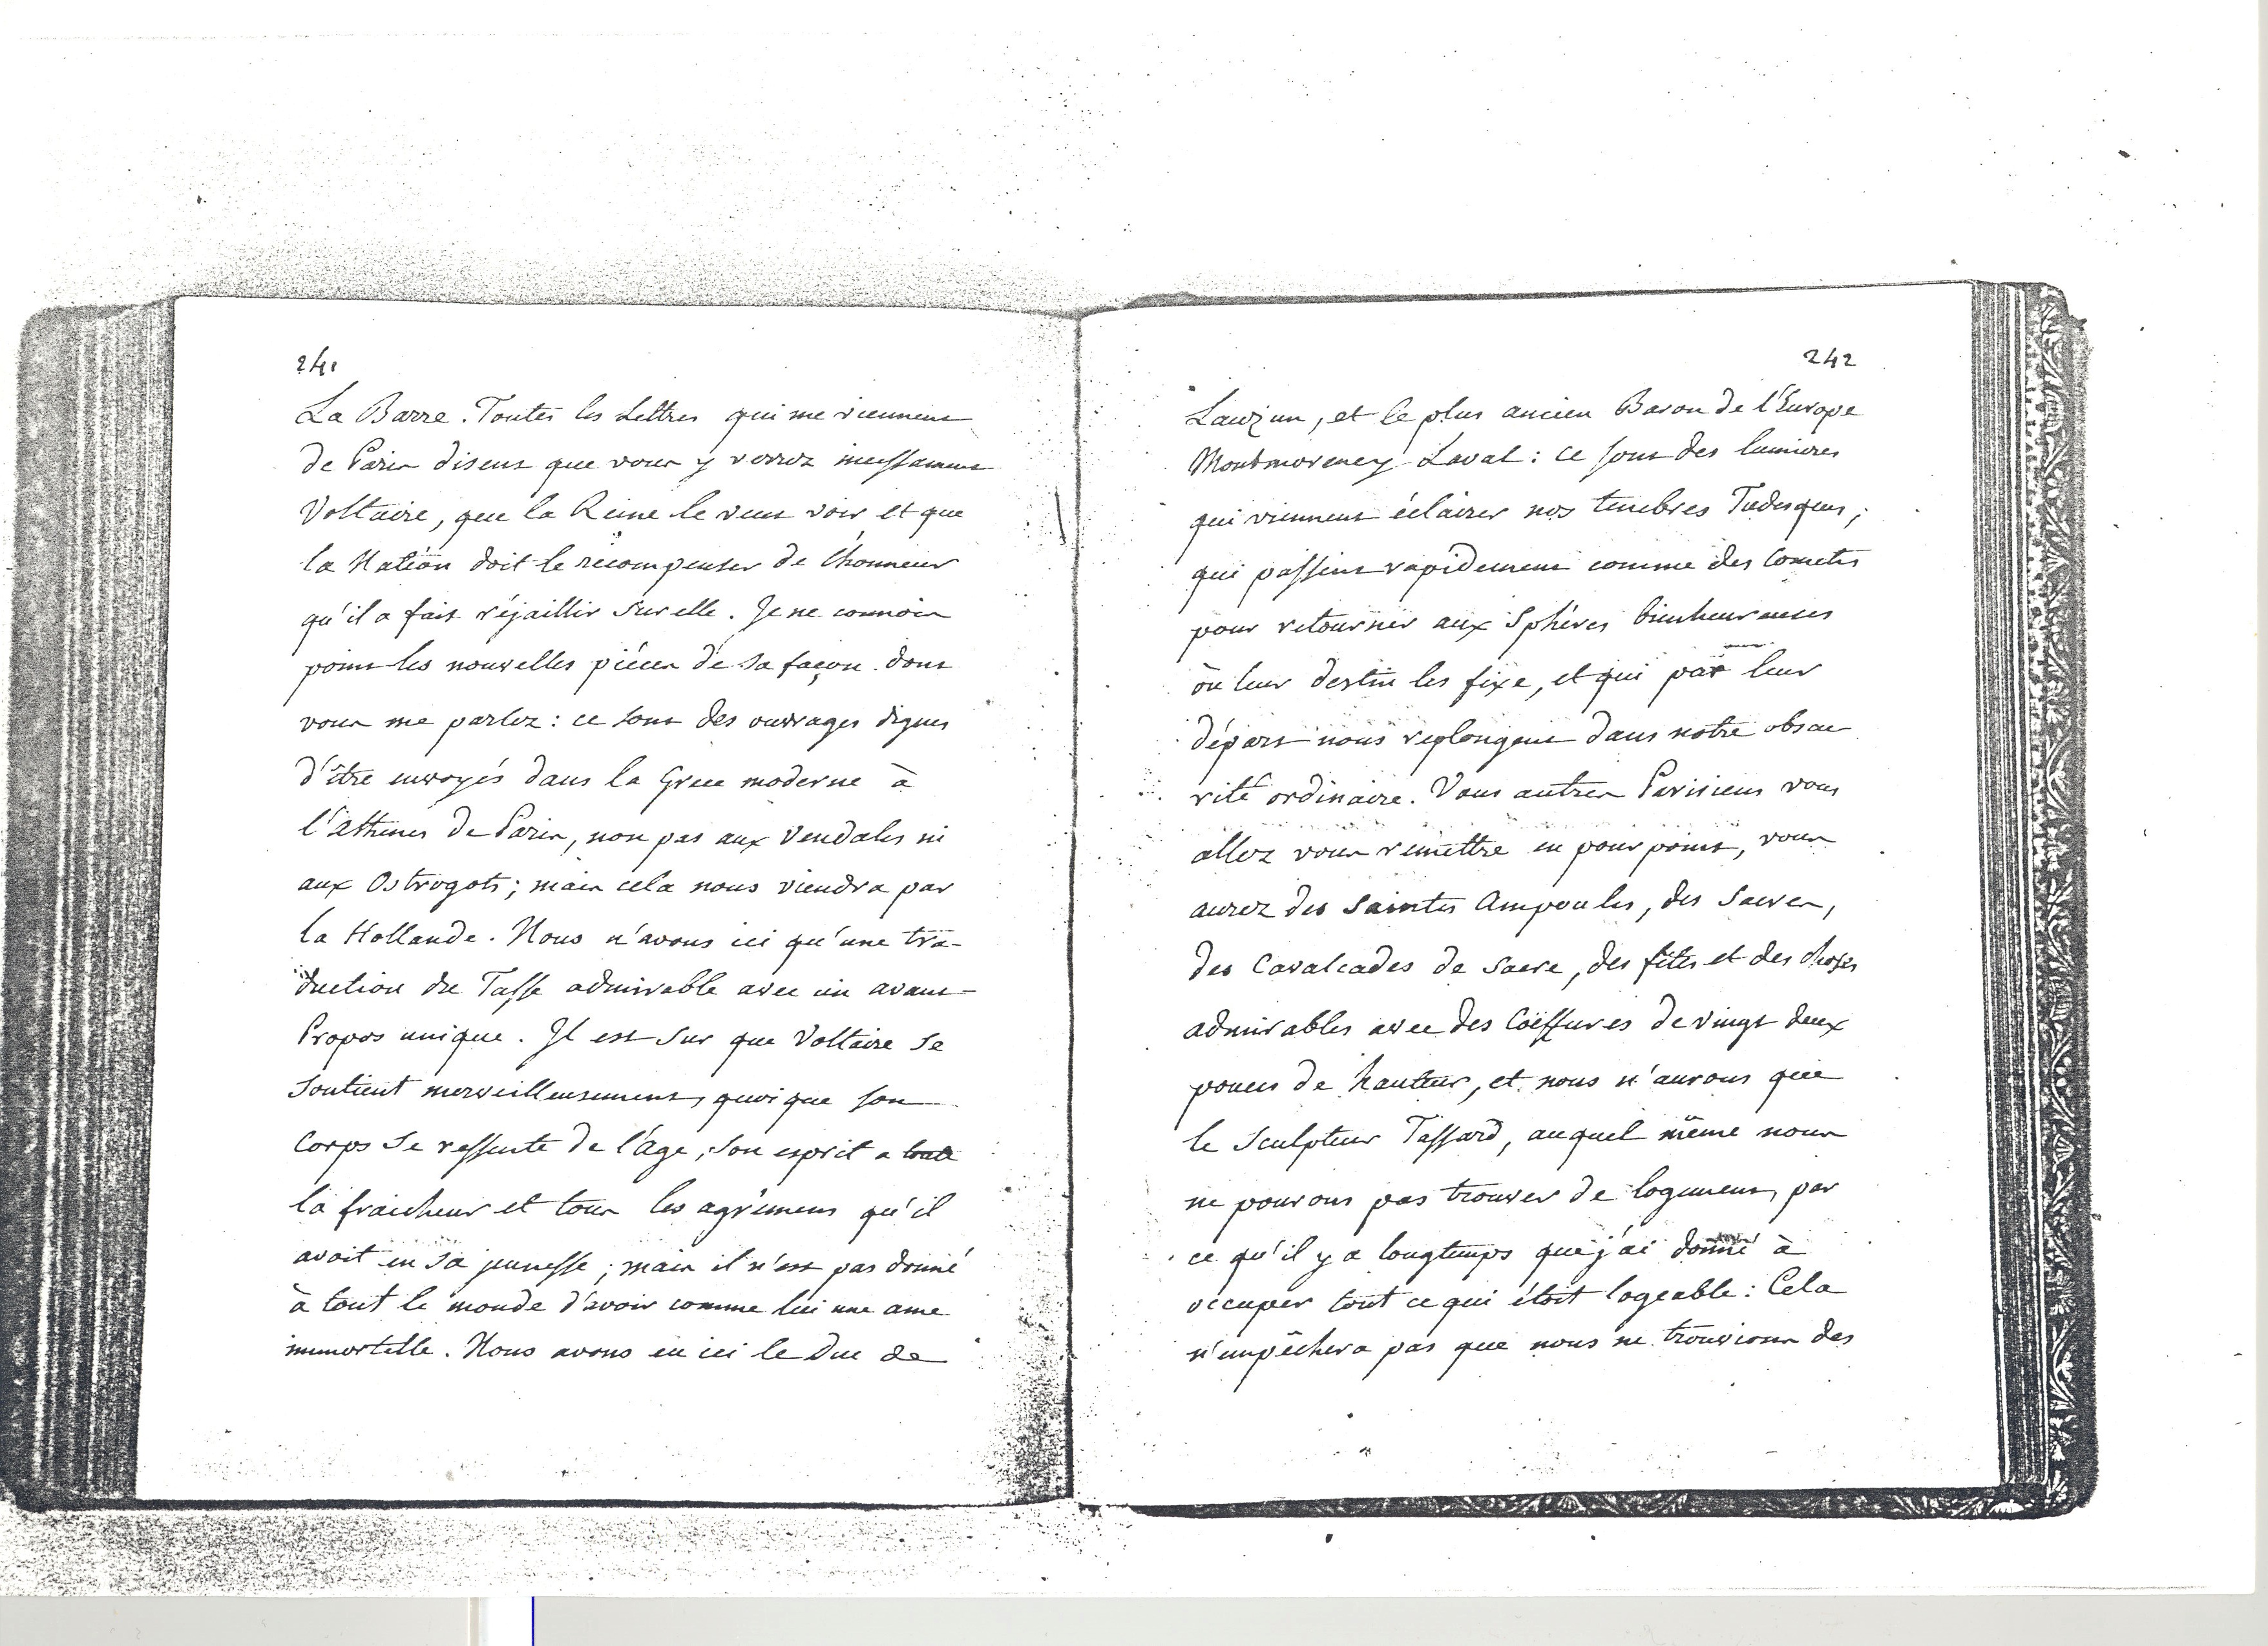 241
La Barre. Toutes les Lettres qui me viennent
de Paris disent que vous y verrez incessament
Voltaire, que la Reine le veut voir et que
la Nation doit le recompenser de l'honneur
qu'il a fait réjaillir sur elle. Je ne connois
point les nouvelles piéces de sa façon dont
vous me parlez : ce sont des ouvrages dignes
d'être envoyés dans la Grece moderne à
l'Athenes de Paris, non pas aux Vendales ni
aux Ostrogots ; mais cela nous viendra par
la Hollande. Nous n'avons ici qu'une tra-
duction du Tasse admirable avec un avant-
Propos unique. Il est sur que Voltaire se
soutient merveilleusement, quoi que son
Corps se ressente de l'âge, son esprit a toute
la fraicheur et tous les agrémens qu'il
avoit en sa jeunesse ; mais il n'est pas donné
à tout le monde d'avoir comme lui une ame
immortelle. Nous avons eu ici le Duc de
242
Lauzun, et le plus ancien Baron de l'Europe
Montmorency-Laval : ce sont des lumieres
qui viennent éclairer nos tenebres Tudesques,
qui passent rapidement comme des Cometes
pour retourner aux Sphéres bienheureuses
où leur destin les fixe, et qui par leur
départ nous replongent dans notre obscu
rité ordinaire. Vous autres Parisiens vous
allez vous remettre en pourpoint, vous
aurez des Saintes Ampoules, des Sacres,
des Cavalcades de Sacre, des fêtes et des choses
admirables avec des Coëffures de vingt deux
pouces de hauteur, et nous n'aurons que
le Sculpteur Tassard, auquel même nous
ne pouvons pas trouver de logement, par
ce qu'il y a longtemps que j'ai donné à
occuper tout ce qui étoit logeable : Cela
n'empêchera pas que nous ne trouvions des